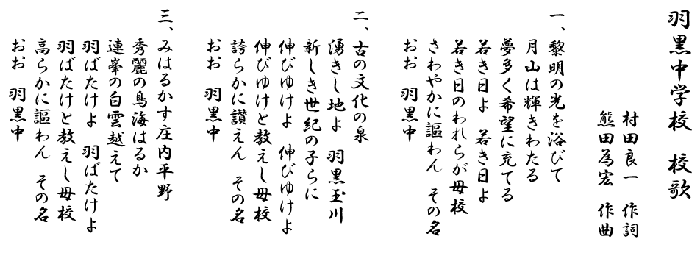 羽黒中学校　校歌
村田良一　作詞
熊田為宏　作曲
一、黎明の光を浴びて
月山は輝きわたる
夢多く希望に充てる
若き日よ　若き日よ
若き日のわれらが母校
さわやかに謳わん　その名
おお　羽黒中
二、古の文化の泉
湧きし地よ　羽黒玉川
新しき世紀の子らに
伸びゆけよ　伸びゆけよ
伸びゆけと教えし母校
誇らかに讃えん　その名
おお　羽黒中
三、みはるかす庄内平野
秀麗の鳥海はるか
連峯の白雲越えて
羽ばたけよ　羽ばたけよ
羽ばたけと教えし母校
高らかに謳わん　その名
おお　羽黒中